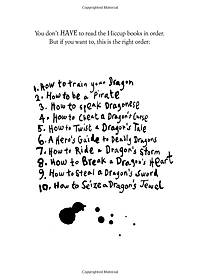 You don't HAVE to read the Hiccup books in order.
But if you want to, this is the right order:
1. How to train your Dragon
2. How to be a Pirate
3. How to speak Dragonese
4. How to Cheat a Dragon's Curse
5. How to Twist a Dragon's Tale
6. A Hero's Guide to Deadly Dragons
7. How to Ride a Dragon's Storm
8. How to Break a Dragon's Heart
9. How to Steal a Dragon's Sword
10. How to Seize a Dragon's Jewel